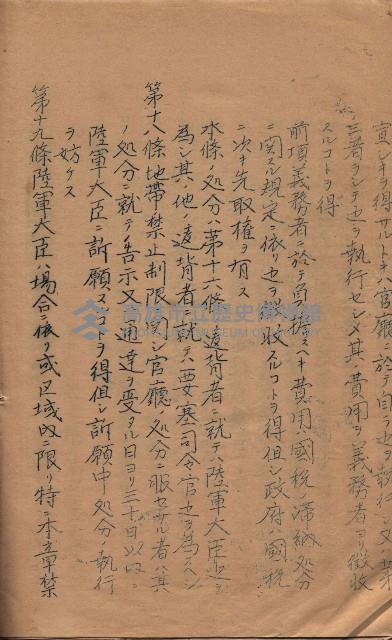 宣シキヲ得サルトキハ官廳ニ於テ自ラ之ヲ執行シ又ハ第
三者ヲシテ之ヲ執行セシメ其ノ費用ヲ義務者ヨリ徴收
スルコトヲ得
前項ノ義務者ニ於テ負擔スヘキ費用ハ國税ノ滯納處分
ニ関スル規定ニ依リ之ヲ徴收スルコトヲ得但シ政府ハ國税
ニ次キ先取權ヲ有ス
本條ノ處分ハ第十六條ノ違背者ニ就テハ陸軍大臣之ヲ
為シ其ノ他ノ違背者ニ就テハ要塞司令官之ヲ為スヘシ
第十八條地帶ノ禁止制限ニ関シ官廳ノ處分ニ服セサル者ハ其
ノ処分ニ就テ告示又ハ通達ヲ受ケタル日ヨリ三十日以内ニ
陸軍大臣ニ訴願スルコトヲ得但シ訴願中処分ノ執行
ヲ妨ケス
第十九條陸軍大臣ハ場合ニ依リ或区域内ニ限リ特ニ本章禁
高雄市立歷史博物館
KAOHSIUNG MUSEUM OF HISTORY